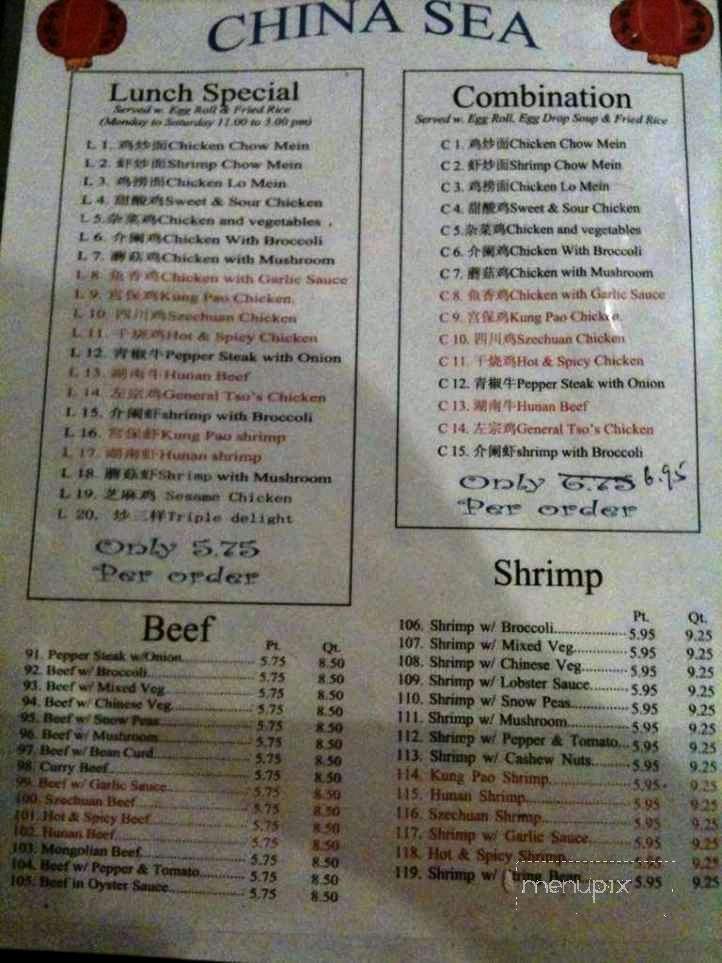 CHINA SEA
Lunch Special
Served w. Egg Roll & Fried Rice
(Monday to Saturday 11.00 to 3.00 pm)
L 1. 鸡炒面Chicken Chow Mein
L 2. 虾炒面Shrimp Chow Mein
L 3. 鸡捞面Chicken Lo Mein
L 4. 甜酸鸡Sweet & Sour Chicken
L 5.杂菜鸡Chicken and vegetables
L 6. 介阑鸡Chicken With Broccoli
L 7. 蘑菇鸡Chicken with Mushroom
L 8. 鱼香鸡Chicken with Garlic Sauce
L 9. 宫保鸡Kung Pao Chicken
L 10. 四川鸡Szechuan Chicken
L 11. 干烧鸡Hot & Spicy Chicken
L 12. 青椒牛Pepper Steak with Onion
L 13. 湖南牛Hunan Beef
L 14. 左宗鸡General Tso's Chicken
L 15. 介阑虾shrimp with Broccoli
L 16. 宫保虾Kung Pao shrimp
L 17. 湖南虾Hunan shrimp
L 18. 蘑菇虾Shrimp with Mushroom
L 19. 芝麻鸡 Sesame Chicken
L 20. 炒三样Triple delight
Only 5.75
Per order
Combination
Served w. Egg Roll, Egg Drop Soup & Fried Rice
C 1. 鸡炒面Chicken Chow Mein
C 2. 虾炒面Shrimp Chow Mein
C 3. 鸡捞面Chicken Lo Mein
C 4. 甜酸鸡Sweet & Sour Chicken
C 5.杂菜鸡Chicken and vegetables
C 6. 介阑鸡Chicken With Broccoli
C 7. 蘑菇鸡Chicken with Mushroom
C 8. 鱼香鸡Chicken with Garlic Sauce
C 9. 宫保鸡Kung Pao Chicken
C 10. 四川鸡Szechuan Chicken
C 11. 干烧鸡Hot & Spicy Chicken
C 12. 青椒牛Pepper Steak with Onion
C 13. 湖南牛Hunan Beef
C 14. 左宗鸡General Tso's Chicken
C 15. 介阑虾shrimp with Broccoli
Only 6.75 6.95
Per order
Beef
Pt. Qt.
91. Pepper Steak w/Onion 5.75 8.50
92. Beef w/ Broccoli 5.75 8.50
93. Beef w/ Mixed Veg 5.75 8.50
94. Beef w/ Chinese Veg 5.75 8.50
95. Beef w/ Snow Peas 5.75 8.50
96. Beef w/ Mushroom 5.75 8.50
97. Beef w/ Bean Curd 5.75 8.50
98. Curry Beef 5.75 8.50
99. Beef w/ Garlic Sauce 5.75 8.50
100. Szechuan Beef 5.75 8.50
101. Hot & Spicy Beef 5.75 8.50
102. Hunan Beef 5.75 8.50
103. Mongolian Beef 5.75 8.50
104. Beef w/ Pepper & Tomato 5.75 8.50
105. Beef in Oyster Sauce 5.75 8.50
Shrimp
Pt. Qt.
106. Shrimp w/ Broccoli 5.95 9.25
107. Shrimp w/ Mixed Veg 5.95 9.25
108. Shrimp w/ Chinese Veg 5.95 9.25
109. Shrimp w/ Lobster Sauce 5.95 9.25
110. Shrimp w/ Snow Peas 5.95 9.25
111. Shrimp w/ Mushroom 5.95 9.25
112. Shrimp w/ Pepper & Tomato 5.95 9.25
113. Shrimp w/ Cashew Nuts 5.95 9.25
114. Kung Pao Shrimp 5.95 9.25
115. Hunan Shrimp 5.95 9.25
116. Szechuan Shrimp 5.95 9.25
117. Shrimp w/ Garlic Sauce 5.95 9.25
118. Hot & Spicy Shrimp 9.25
119. Shrimp w/ String Bean 5.95 9.25
menupix